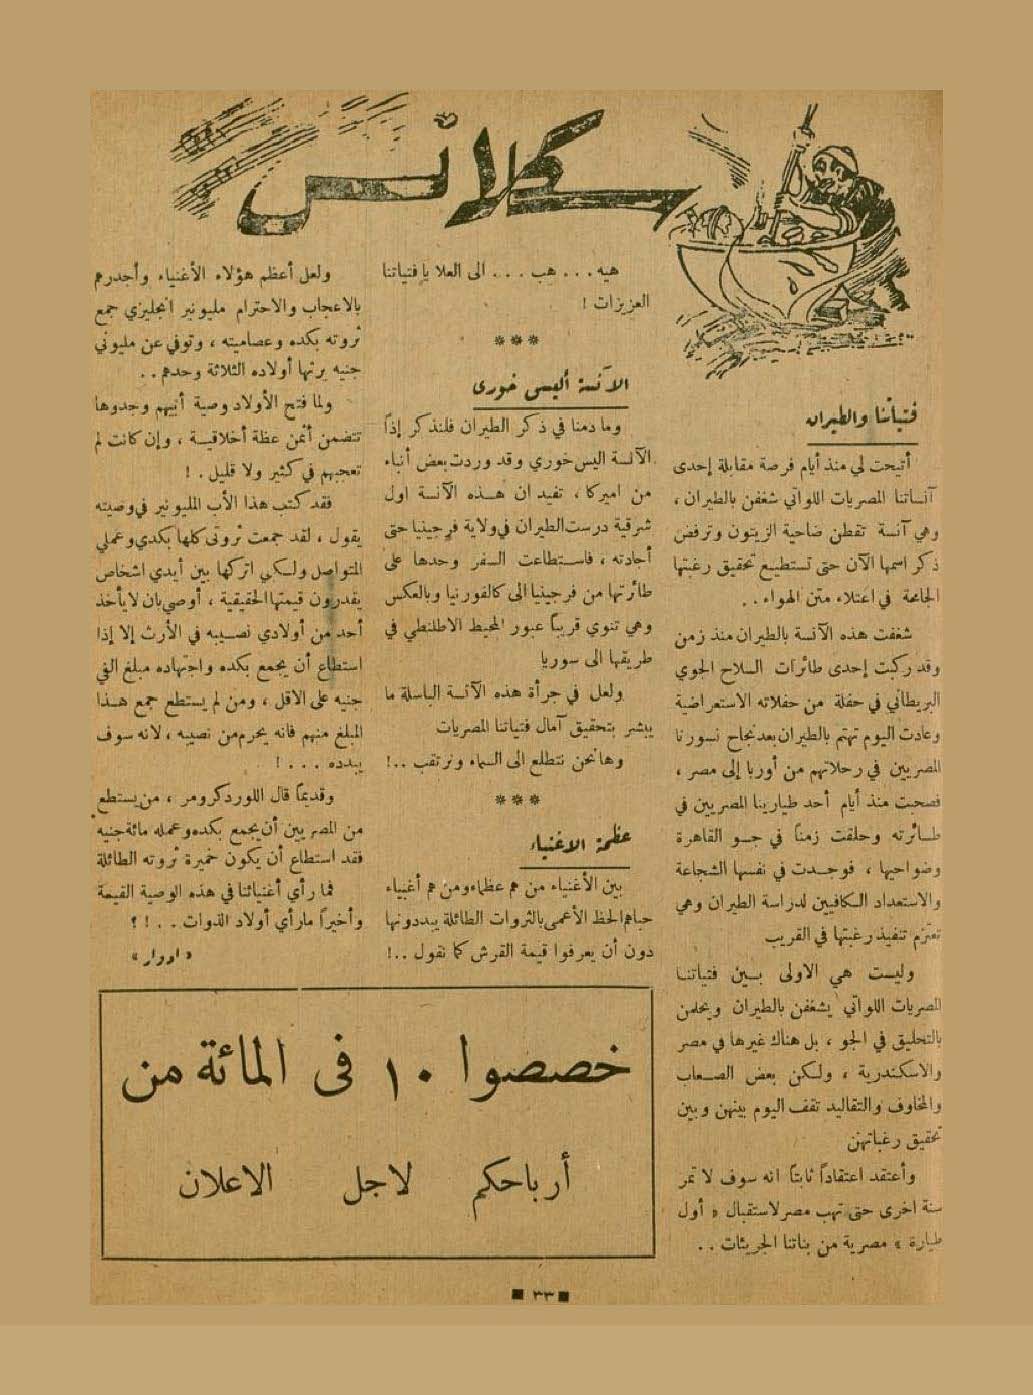 سكلانس
فتياتنا والطيران
أتيحت لي منذ أيام فرصة مقابلة إحدى
آنساتنا المصريات اللواتي شغفن بالطيران ،
وهي آنسة تقطن ضاحية الزيتون وترفض
ذكر اسمها الآن حتى تستطيع تحقيق رغبتها
الجامحة في اعتلاء متن الهواء . .
شغفت هذه الآنسة بالطيران منذ زمن
وقد ركبت إحدى طائرات السلاح الجوي
البريطاني في حفلة من حفلاته الاستعراضية
وعادت اليوم تهتم بالطيران بعد نجاح نسورنا
المصريين في رحلاتهم من أوربا إلى مصر ،
فصحبت منذ أيام أحد طيارينا المصريين في
طائرته وحلقت زمناً في جو القاهرة
وضواحيها ، فوجدت في نفسها الشجاعة
والاستعداد الكافيين لدراسة الطيران وهي
تعتزم تنفيذ رغبتها في القريب
وليست هي الاولى بين فتياتنا
المصريات اللواتي يشغفن بالطيران ويحلمن
بالتحليق في الجو ، بل هناك غيرها في مصر
والاسكندرية ، ولكن بعض الصعاب
والمخاوف والتقاليد تقف اليوم بينهن وبين
تحقيق رغباتهن
وأعتقد اعتقاداً ثابتاً انه سوف لا تمر
سنة اخرى حتى تهب مصر لاستقبال « أول
طيارة » مصرية من بناتنا الجريئات . .
هيه . . . هب . . . الى العلا يا فتياتنا
العزيزات !
***
الآنسة أليس خورى
وما دمنا في ذكر الطيران فلنذكر إذاً
الآنسة اليس خوري وقد وردت بعض أنباء
من اميركا ، تفيد ان هذه الآنسة اول
شرقية درست الطيران في ولاية فرجينيا حتى
أجادته ، فاستطاعت السفر وحدها على
طائرتها من فرجينيا الى كالفورنيا وبالعكس
وهي تنوي قريباً عبور المحيط الاطلنطي في
طريقها الى سوريا
ولعل في جرأة هذه الآنسة الباسلة ما
يبشر بتحقيق آمال فتياتنا المصريات
وها نحن نتطلع الى السماء ونرتقب ..!
***
عظمة الاغنياء
بين الأغنياء من هم عظماء ومن هم أغبياء
حباهم الحظ الأعمى بالثروات الطائلة يبددونها
دون أن يعرفوا قيمة القرش كما نقول ..!
ولعل أعظم هؤلاء الأغنياء وأجدرهم
بالاعجاب والاحترام مليونير انجليزي جمع
ثروته بكده وعصاميته ، وتوفي عن مليوني
جنيه يرثها أولاده الثلاثة وحدهم . .
ولما فتح الأولاد وصية أبيهم وجدوها
تتضمن أثمن عظة أخلاقية ، وإن كانت لم
تعجبهم في كثير ولا قليل . !
فقد كتب هذا الأب المليونير في وصيته
يقول ، لقد جمعت ثروتي كلها بكدي وعملي
المتواصل ولكي اتركها بين أيدي اشخاص
يقدرون قيمتها الحقيقية ، أوصي بان لا يأخذ
أحد من أولادي نصيبه في الأرث إلا إذا
استطاع أن يجمع بكده واجتهاده مبلغ الفي
جنيه على الاقل ، ومن لم يستطع جمع هذا
المبلغ منهم فانه يحرم من نصيبه ، لانه سوف
يبدده . . . !
وقديماً قال اللورد كرومر ، من يستطع
من المصريين أن يجمع بكده وعمله مائة جنيه
فقد استطاع أن يكون خميرة ثروته الطائلة
فما رأي أغنيائنا في هذه الوصية القيمة
وأخيراً ما رأي أولاد الذوات . . ! ؟
« ادوار »
خصصوا ١٠ فى المائة من
أرباحكم لاجل الاعلان
■ ٣٣ ■